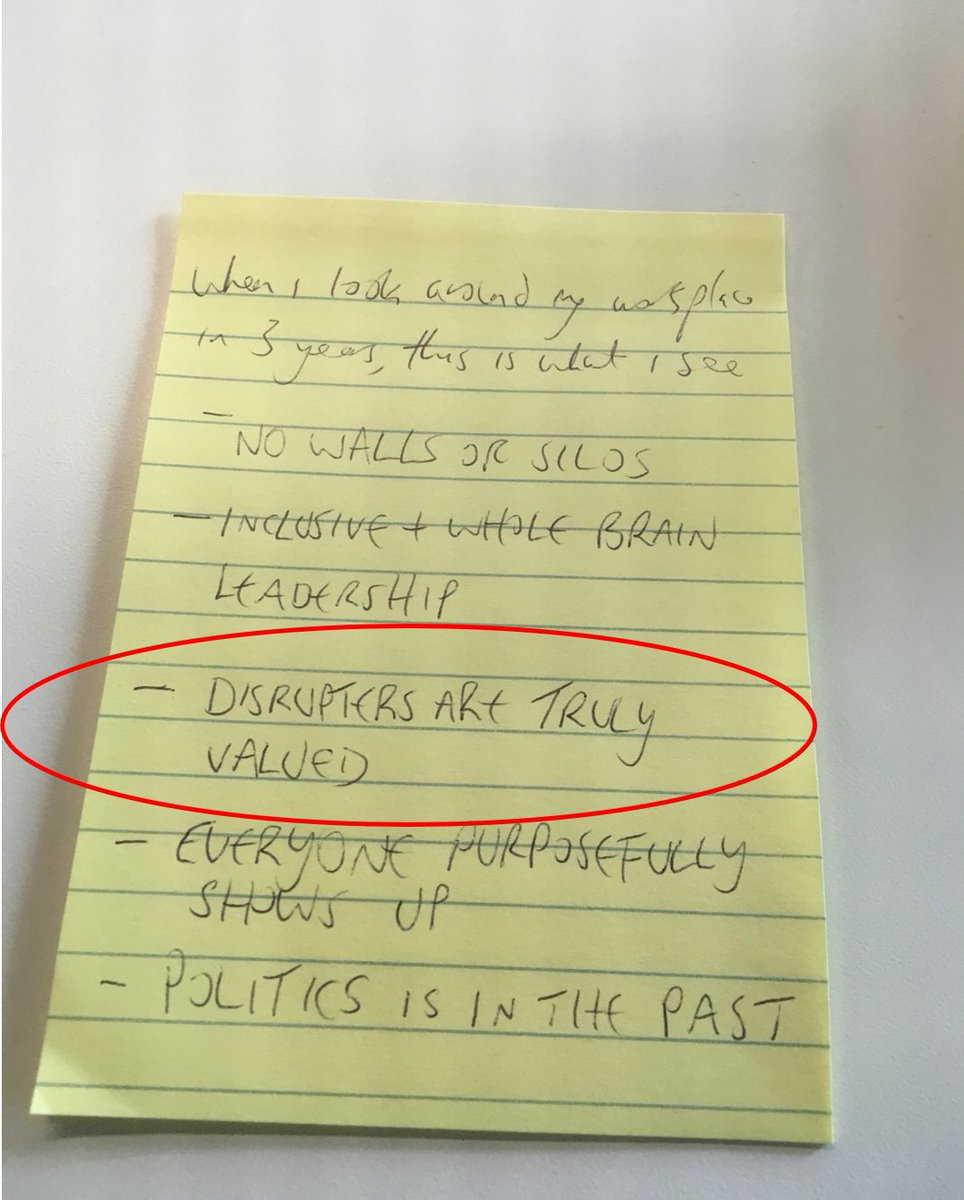 when I look around my workplace
in 3 years, this is what I see
- NO WALLS OR SILOS
- INCLUSIVE + WHOLE BRAIN
LEADERSHIP
- DISRUPTERS ARE TRULY
VALUED
- EVERYONE PURPOSEFULLY
SHOWS UP
- POLITICS IS IN THE PAST